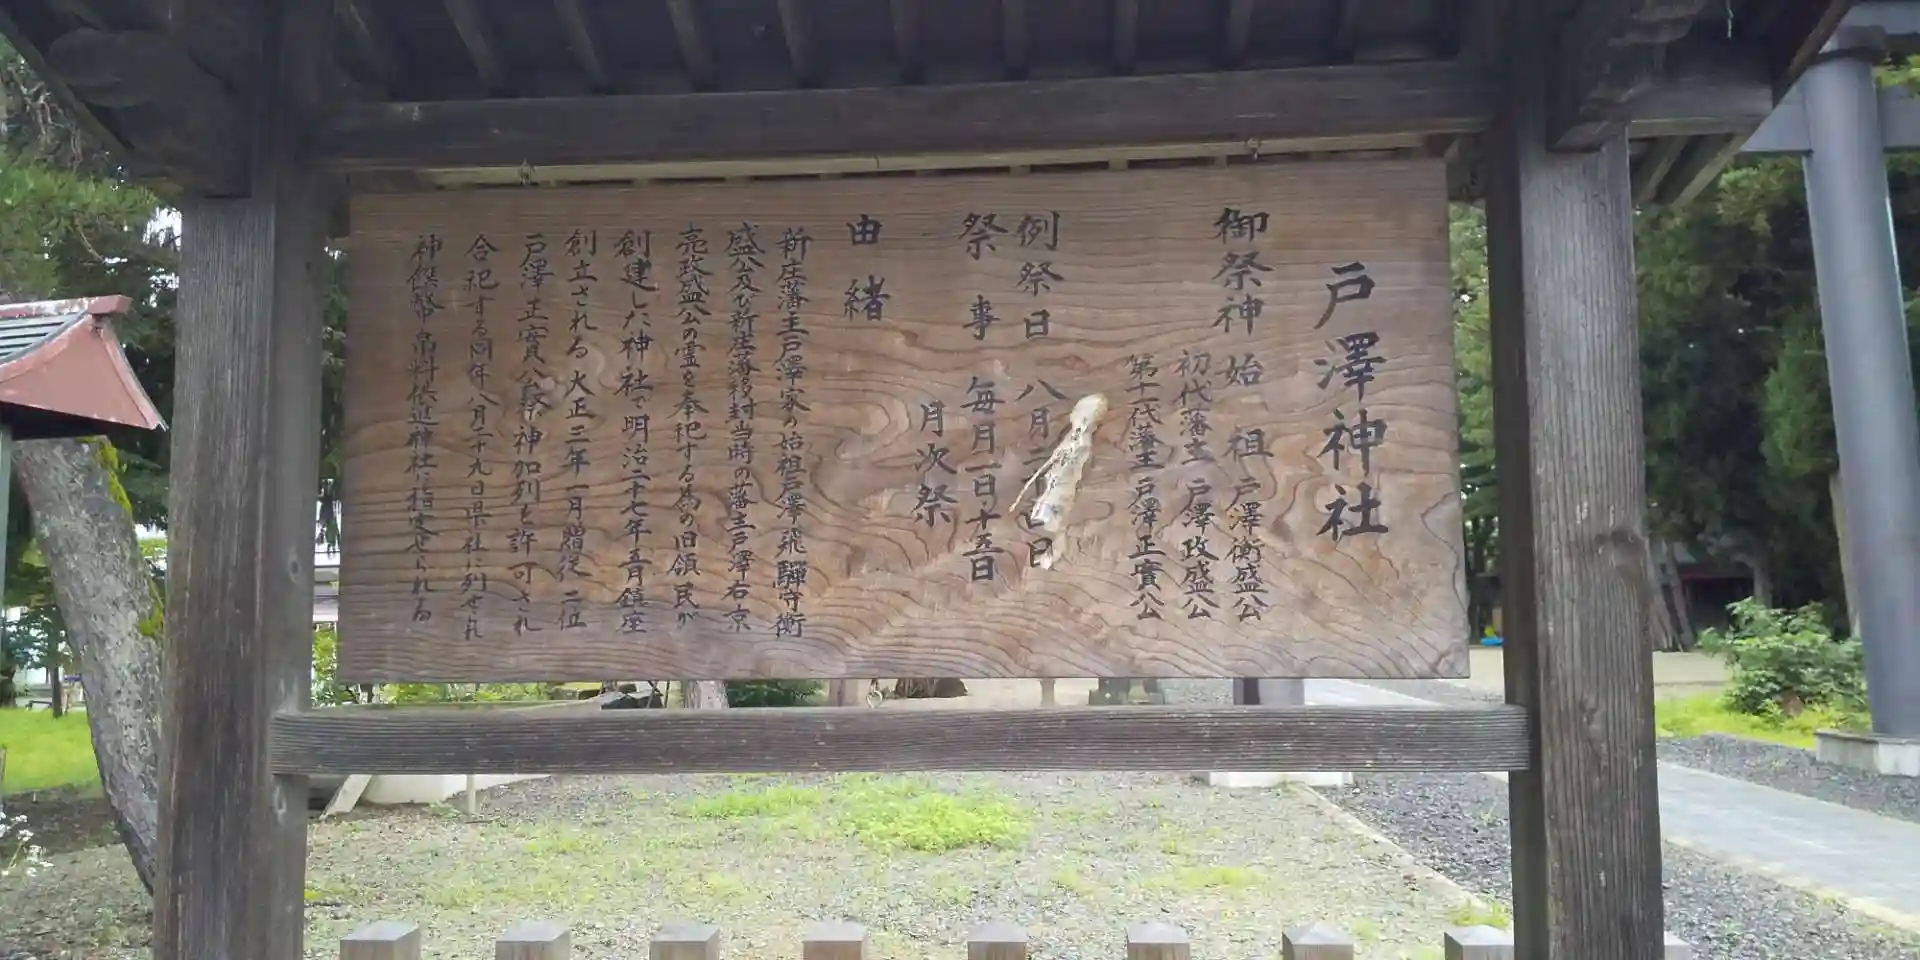 戸澤神社
御祭神 始祖 戸澤衡盛公
初代藩主 戸澤政盛公
第十一代藩主 戸澤正實公
例祭日 八月二 日
祭事 毎月一日、十五日
月次祭
由緒
新庄藩主戸澤家の始祖戸澤飛騨守衡
盛公及び新庄藩移封当時の藩主戸澤右京
亮政盛公の霊を奉祀する為の旧領民が
創建した神社で明治二十七年五月鎮座
創立される 大正三年一月贈従二位
戸澤正實公祭神加列を許可され
合祀する同年八月二十九日県社に列せられ
神饌幣帛料供進神社に指定せられる